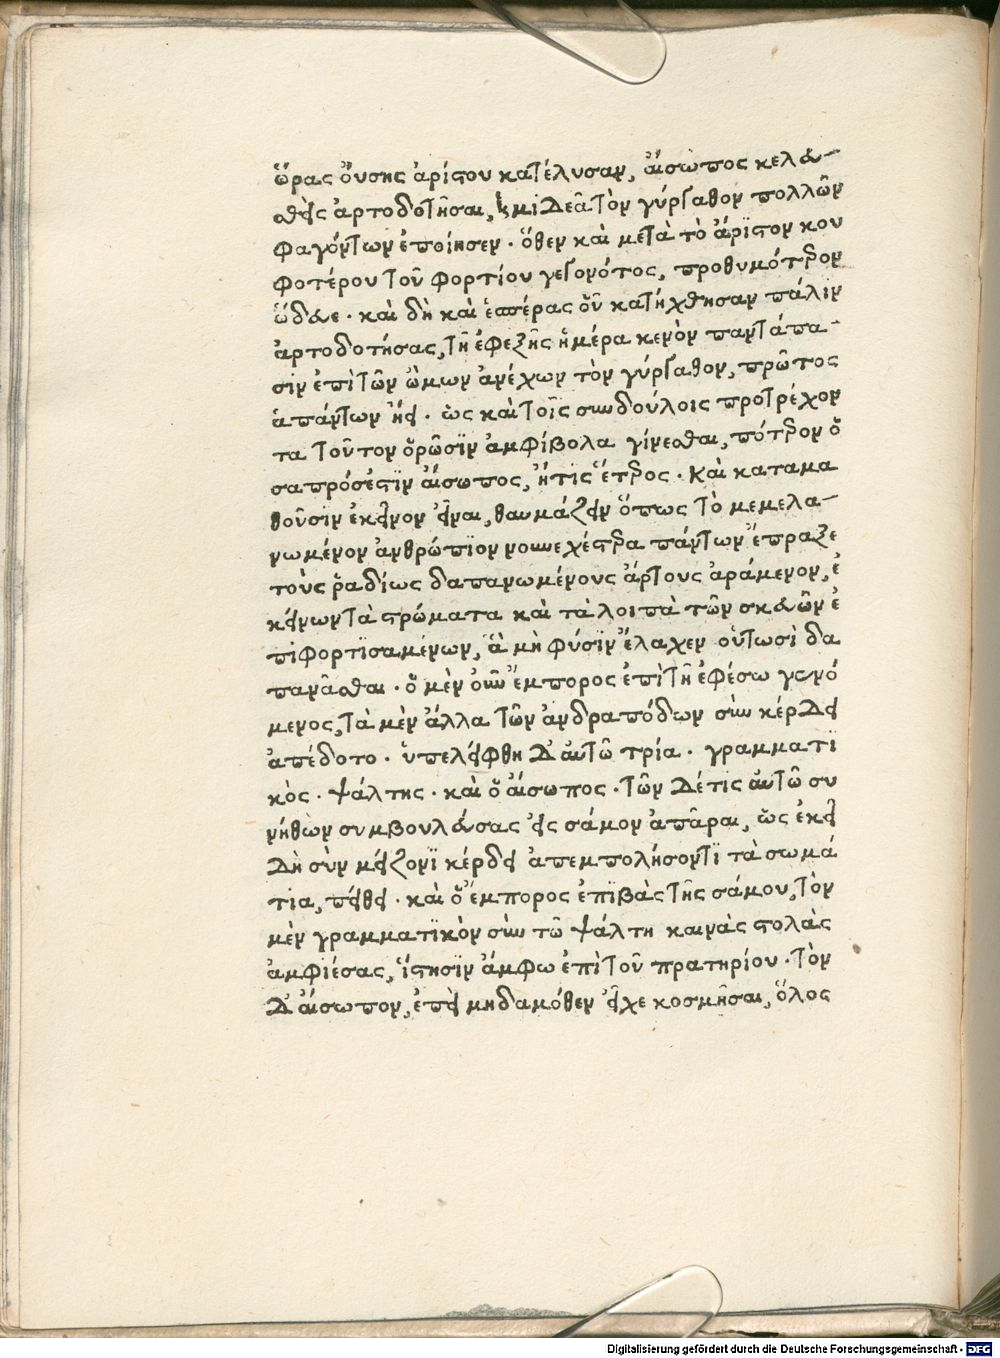 ὥρας οὔσης ἀρίστου κατέλυσαν, αἴσωπος κελευ-
σθεὶς ἀρτοδοτῆσαι, ἡμιδεᾶ τὸν γύργαθον πολλῶν
φαγόντων ἐποίησεν. ὅθεν καὶ μετὰ τὸ ἄριστον κου
φοτέρου τοῦ φορτίου γεγονότος, προθυμότερον
ὥδευε. καὶ δὴ καὶ ἑσπέρας οὗ κατήχθησαν πάλιν
ἀρτοδοτήσας, τῇ ἐφεξῆς ἡμέρα κενὸν παντάπα-
σιν ἐπὶ τῶν ὤμων ἀνέχων τὸν γύργαθον, πρῶτος
ἁπάντων ᾔει. ὡς καὶ τοῖς συνδούλοις προτρέχον
τα τοῦτον ὁρῶσιν ἀμφίβολα γίνεσθαι, πότερον ὁ
σαπρός ἐστιν αἴσωπος, ἤ τις ἕτερος. καὶ καταμα
θοῦσιν ἐκεῖνον εἶναι, θαυμάζειν ὅπως τὸ μεμελα-
νωμένον ἀνθρώπιον νουνεχέστερα πάντων ἔπραξε
τοὺς ῥαδίως δαπανωμένους ἄρτους ἀράμενον, ἐ
κείνων τὰ στρώματα καὶ τὰ λοιπὰ τῶν σκευῶν ἐ
πιφορτισαμένων, ἃ μὴ φύσιν ἔλαχεν οὑτωσὶ δα
πανᾶσθαι. ὁ μὲν οὖν ἔμπορος ἐπὶ τῇ ἐφέσω γενό
μενος, τὰ μὲν ἄλλα τῶν ἀνδραπόδων σὺν κέρδει
ἀπέδοτο. ὑπελείφθη δ' αὐτῶ τρία. γραμματι
κὸς. ψάλτης. καὶ ὁ αἴσωπος. τῶν δέ τις αὐτῶ συ
νήθων συμβουλεύσας εἰς σάμον ἀπᾶραι, ὡς ἐκεῖ
δὴ σὺν μείζονι κέρδει ἀπεμπολήσοντι τὰ σωμά
τια, πείθει. καὶ ὁ ἔμπορος ἐπιβὰς τῆς σάμου, τὸν
μὲν γραμματικὸν σὺν τῶ ψάλτη καινὰς στολὰς
ἀμφιέσας, ἵστησιν ἄμφω ἐπὶ τοῦ πρατηρίου. τὸν
δ' αἴσωπον, ἐπεὶ μηδαμόθεν εἶχε κοσμῆσαι, ὅλος
Digitalisierung gefördert durch die Deutsche Forschungsgemeinschaft - DFG